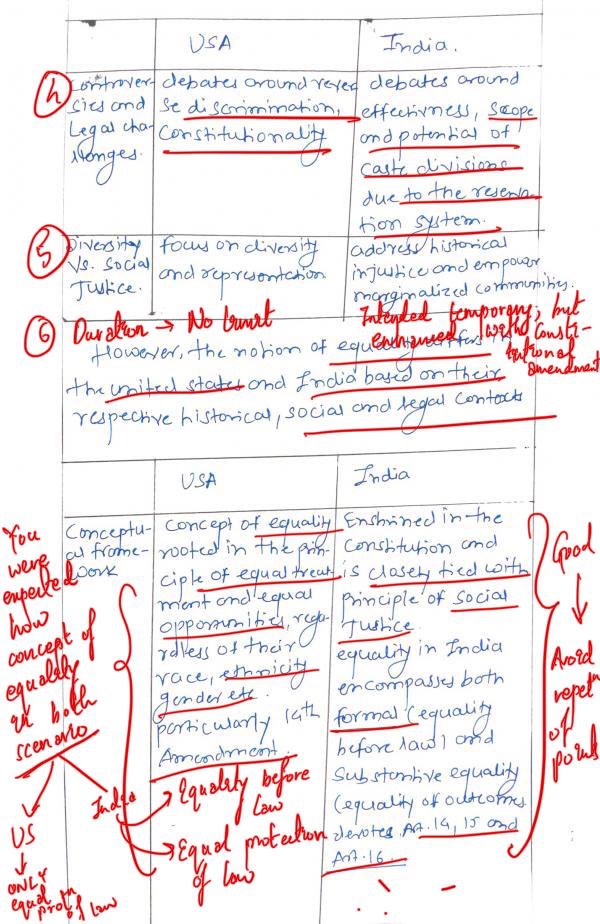 USA
India.
(h)
Controver-
sies and
Legal cha-
llenges.
debates around rever
se discrimination,
Constitutionality
debates around
effectivness, scope
and potential of
caste divisions
due to the reserva-
tion system.
(5)
Diversity
Vs. Social
Justice.
focus on diversity
and representation
address historical
injustice and empower
marginalized communities.
(6) Duration → No limit
Intended temporary, but
enhanced with consti-
tutional
amendment
However, the notion of
the united states and India based on their
respective historical, social and legal contexts
USA
India
Conceptu-
al frame-
work
Concept of equality
rooted in the prin-
ciple of equal treat
ment and equal
opportunities, rega-
rdless of their
race, ethnicity
gender etc.
particularly 14th
Amendment.
Enshrined in the
Constitution and
is closely tied with
principle of Social
Justice.
equality in India
encompasses both
formal (equality
before law) and
Substantive equality
(equality of outcomes
denotes Art. 14, 15 and
Art. 16.
You
were
expected
how
concept of
equality
in both
scenario
India
→ Equality before
of law
→ Equal protection
of law
US
↓
ONLY
equal protn
of law
Good
↓
Avoid
repetn
of
points